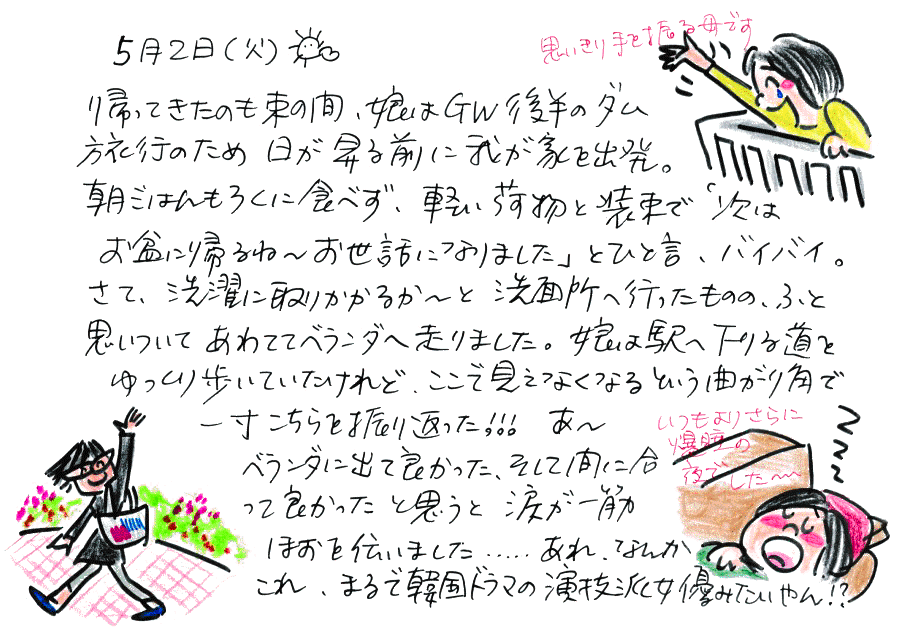 5月2日(火)
思いきり手を振る母です
帰ってきたのも束の間、娘はGW後半のダム
旅行のため 日が昇る前に我が家を出発。
朝ごはんもろくに食べず、軽い荷物と装束で「次は
お盆に帰るね〜お世話になりました」とひと言、バイバイ。
さて、洗濯に取りかかるか〜と 洗面所へ行ったものの、ふと
思いついて あわててベランダへ走りました。娘は駅へ下りる道を
ゆっくり歩いていたけれど、ここで見えなくなるという曲がり角で
一寸こちらを振り返った!!! あ〜
ベランダに出て良かった、そして間に合
って良かった と思うと 涙が一筋
ほおを伝いました‥‥‥あれ、なんか
これ、まるで韓国ドラマの演技派女優みたいやん!?
いつもよりさらに
爆睡の
夜で
した〜〜